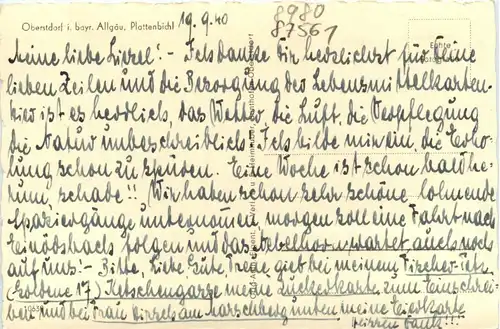 Oberstdorf i. bayr. Allgäu, Plattenbichl
19.9.40
8980
87561
Echte
Meine liebe Liesel! - Ich danke Dir herzlichst für Deine
lieben Zeilen und die Besorgung der Lebensmittelkarten.
hier ist es herrlich, das Wetter, die Luft, die Verpflegung
die Natur unbeschreiblich. Ich bilde mir ein, die Erho-
lung schon zu spüren. Eine Woche ist schon bald he-
rum, schade!! Wir haben schon sehr schöne lohnende
Spaziergänge unternommen morgen soll eine Fahrt nach
Einödsbach folgen und das Nebelhorn wartet auch noch
auf uns! - Bitte, liebe Gute Treue gieb bei meinem
(Goldene 17) Ketschengasse meine Zuckerkarte zum Einschrei-
ben und bei Frau am Marschberg unten meine Eierkarte